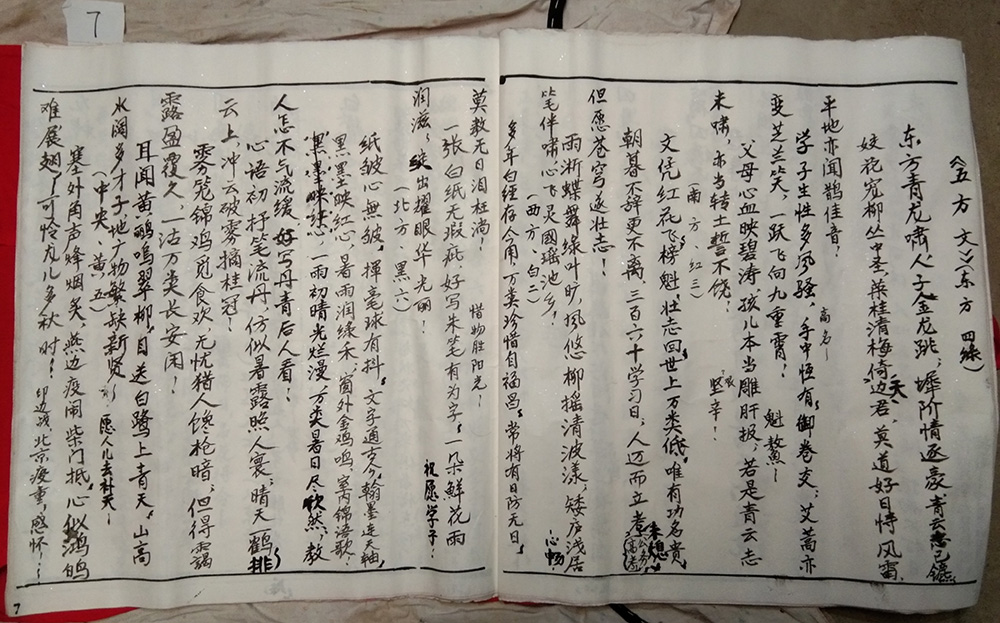 7
《五方文》(东方 四绿)
东方青龙啸人子金龙跳；墀阶情逐豪青云志已镳。
姣花宠柳丛中圣，菜桂清梅倚天边君 莫道好日恃风雷，
平地亦闻鹊佳音！
学子生性多风骚，手中恒有御卷交；艾蒿亦 高名！
变芝兰笑，一跃飞向九重霄！ 魁鳌！
父母心血映碧涛，孩儿本当雕肝报，若是青云志
未啸，亦当转土誓不饶！ 坚辛！
(南方、红三)
文凭红花飞榜魁，壮志回世上万类低，唯有功名贵，
朝暮不辞更不离，三百六十学习日，人迈而立
但愿苍穹逐壮志！
雨淅蝶舞绿叶旷，风悠柳摇清波漾，矮庐浅居
笔伴啸心飞，灵国瑶池乡！ 心畅！
(西方、白二)
多年白经存今用，万类珍惜自福昌，常将有日防无日，
莫教无日泪枉淌！ 惜物胜阳光！
一张白纸无瑕疵，好写朱笔有为子，一朵鲜花雨
润滋，绽出耀眼华光丽！ 祝愿学子！
(北方、黑六)
纸皱心無皱，揮毫球有抖，文字通古今，翰墨连天軸，
黑墨映红心，暑雨润绿禾，窗外金鸡鸣，室内锦语歌！
黑墨映 一雨初晴光烂漫，万类暑日尽欣然，教
人怎不气流缓，好写丹青后人看！
心语初抒笔流丹，仿似暑露照人寰，晴天一鹤排
云上，冲云破雾摘桂冠！
雾笼锦鸡觅食欢，无忧猎人馋枪暗，但得露
露盈覆久，一沽万类长安闲！
耳闻黄鹂鸣翠柳，目送白鹭上青天，山高
水阔多才子，地广物繁缺新贤 愿人儿去补天！
(中央、黄五)
塞外角声烽烟炙，燕边疫闹柴门抵，心似鸿鸪
难展翅，可怜凡儿多秋时！ 印边战，北京疫重，感怀！
7